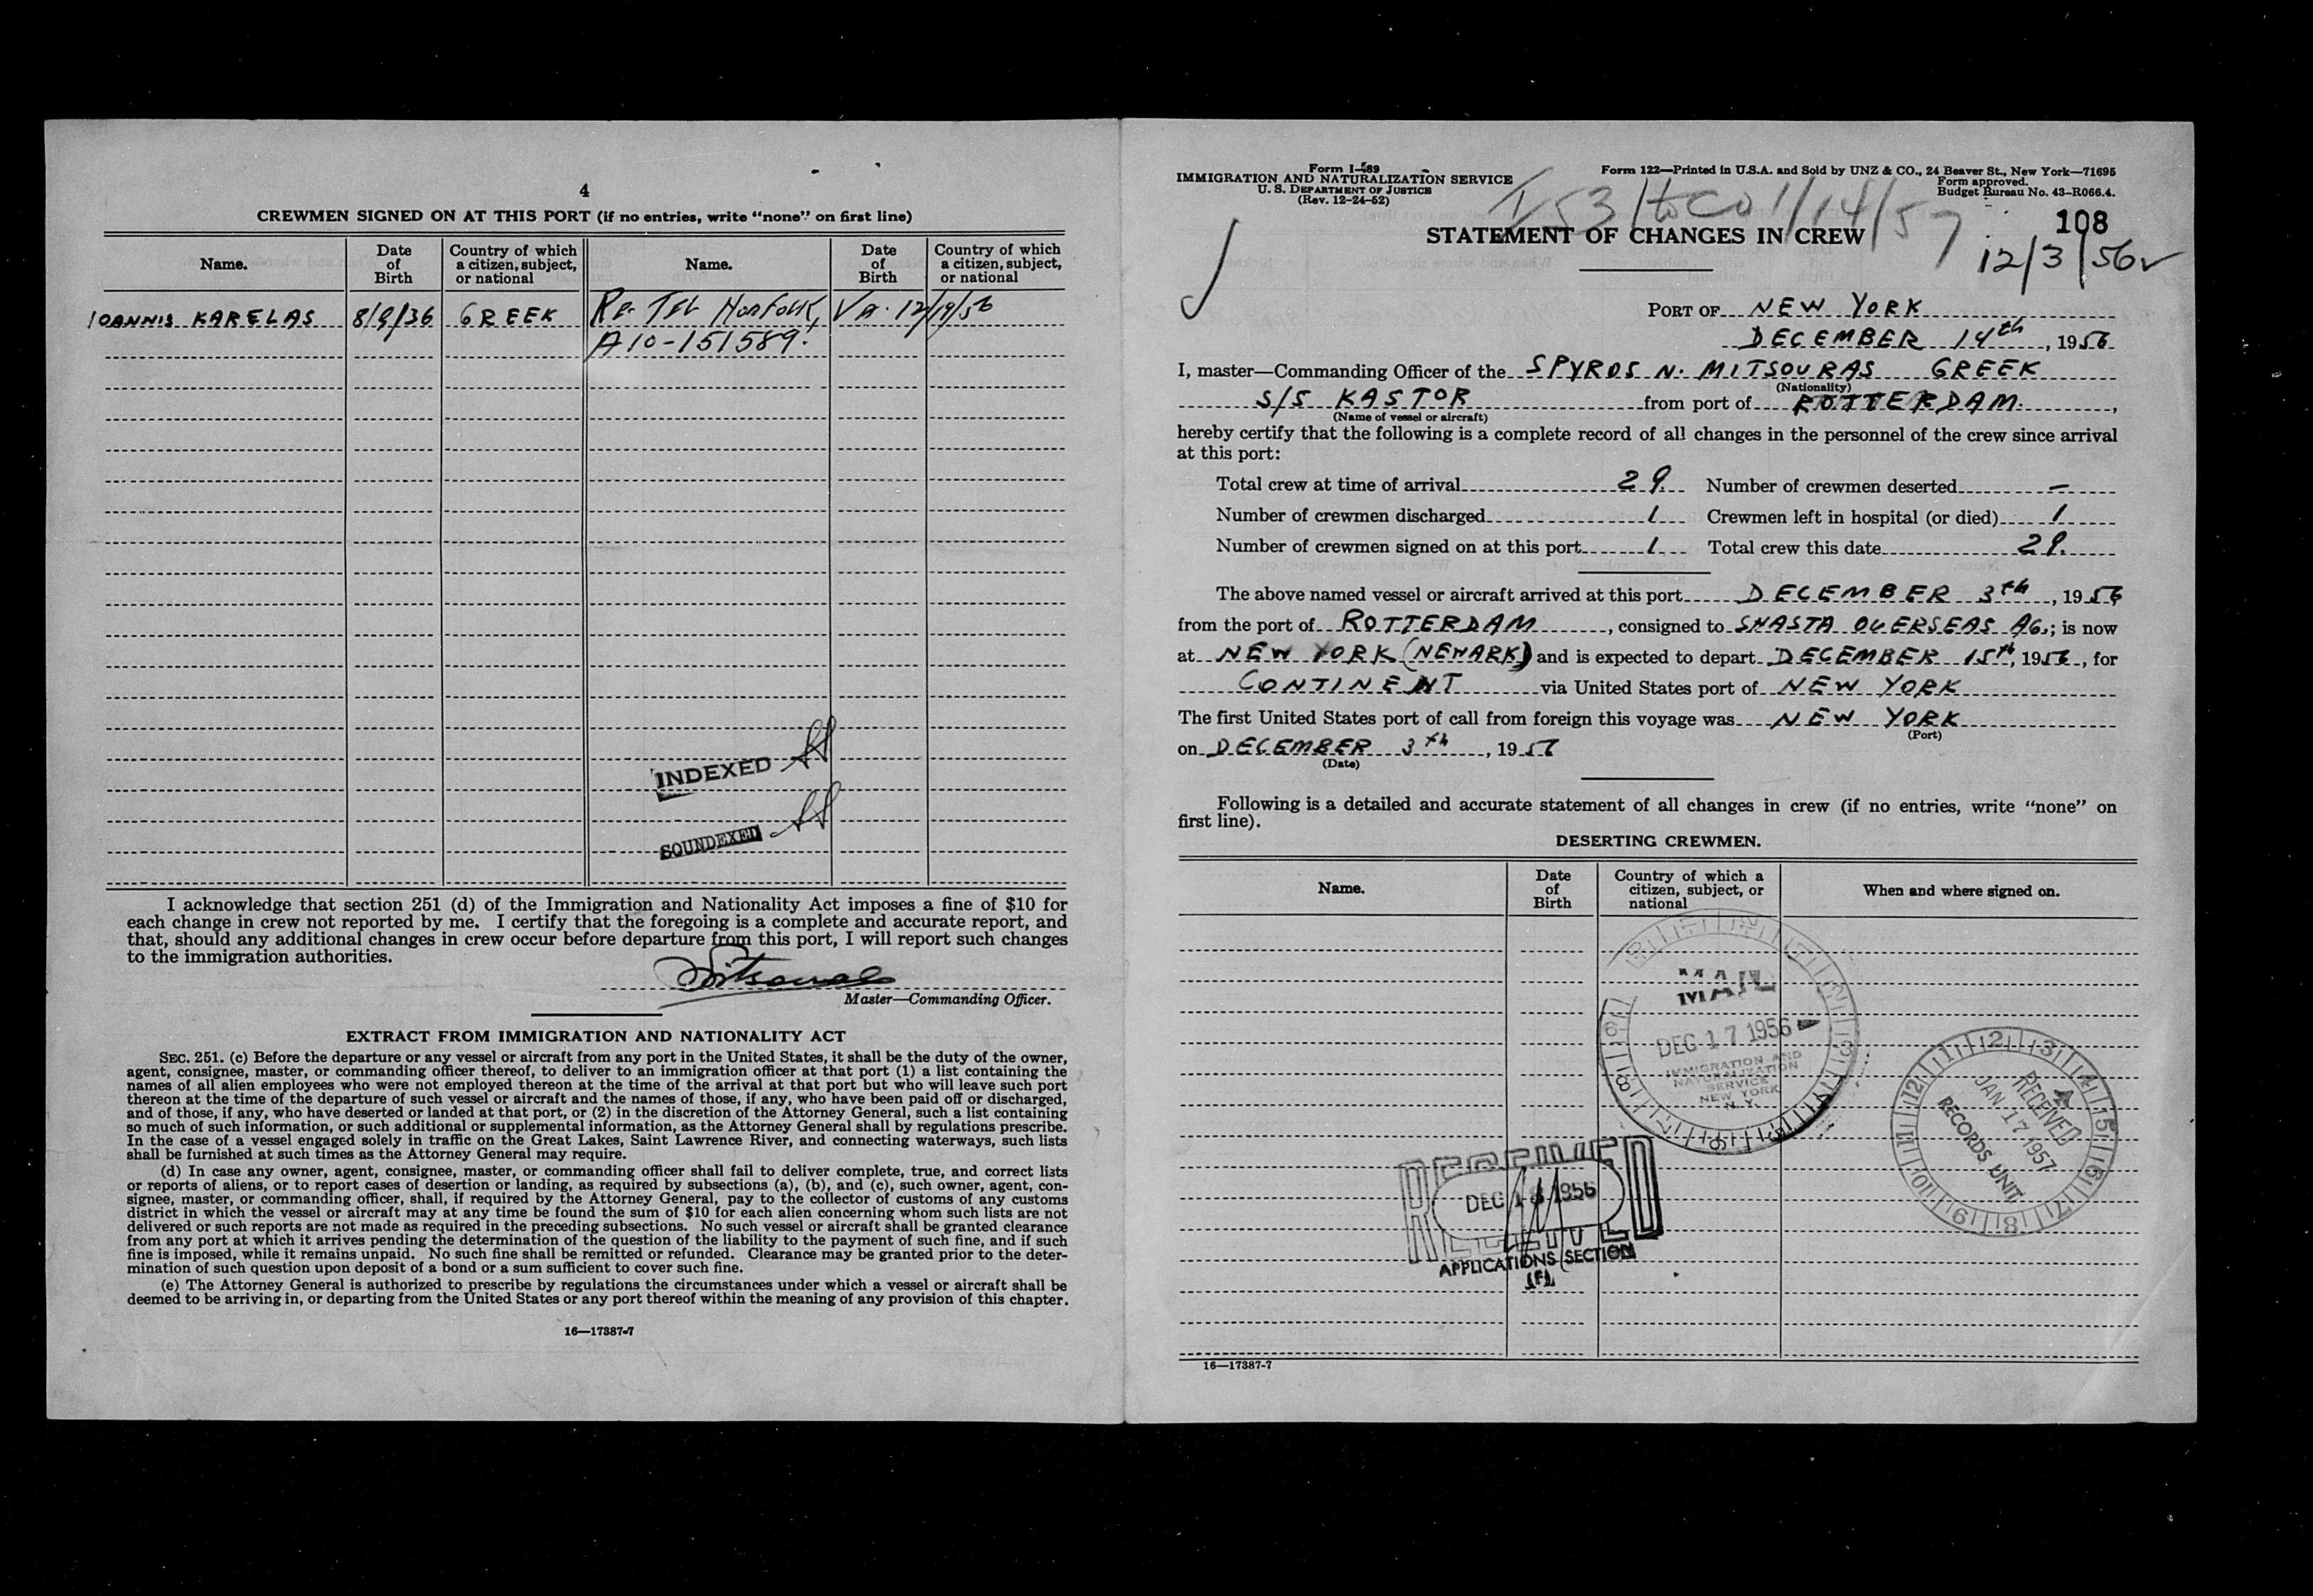 4
CREWMEN SIGNED ON AT THIS PORT (if no entries, write "none" on first line)
Name. Date of Birth Country of which a citizen, subject, or national Name. Date of Birth Country of which a citizen, subject, or national
IOANNIS KARELAS 8/9/36 GREEK Re. Tel Norfolk, Va. 12/19/56
A10-151589.
INDEXED
SOUNDEXED
I acknowledge that section 251 (d) of the Immigration and Nationality Act imposes a fine of $10 for
each change in crew not reported by me. I certify that the foregoing is a complete and accurate report, and
that, should any additional changes in crew occur before departure from this port, I will report such changes
to the immigration authorities.
Master—Commanding Officer.
EXTRACT FROM IMMIGRATION AND NATIONALITY ACT
SEC. 251. (c) Before the departure or any vessel or aircraft from any port in the United States, it shall be the duty of the owner,
agent, consignee, master, or commanding officer thereof, to deliver to an immigration officer at that port (1) a list containing the
names of all alien employees who were not employed thereon at the time of the arrival at that port but who will leave such port
thereon at the time of the departure of such vessel or aircraft and the names of those, if any, who have been paid off or discharged,
and of those, if any, who have deserted or landed at that port, or (2) in the discretion of the Attorney General, such a list containing
so much of such information, or such additional or supplemental information, as the Attorney General shall by regulations prescribe.
In the case of a vessel engaged solely in traffic on the Great Lakes, Saint Lawrence River, and connecting waterways, such lists
shall be furnished at such times as the Attorney General may require.
(d) In case any owner, agent, consignee, master, or commanding officer shall fail to deliver complete, true, and correct lists
or reports of aliens, or to report cases of desertion or landing, as required by subsections (a), (b), and (c), such owner, agent, con-
signee, master, or commanding officer, shall, if required by the Attorney General, pay to the collector of customs of any customs
district in which the vessel or aircraft may at any time be found the sum of $10 for each alien concerning whom such lists are not
delivered or such reports are not made as required in the preceding subsections. No such vessel or aircraft shall be granted clearance
from any port at which it arrives pending the determination of the question of the liability to the payment of such fine, and if such
fine is imposed, while it remains unpaid. No such fine shall be remitted or refunded. Clearance may be granted prior to the deter-
mination of such question upon deposit of a bond or a sum sufficient to cover such fine.
(e) The Attorney General is authorized to prescribe by regulations the circumstances under which a vessel or aircraft shall be
deemed to be arriving in, or departing from the United States or any port thereof within the meaning of any provision of this chapter.
16—17387-7
Form I-489
IMMIGRATION AND NATURALIZATION SERVICE
U. S. DEPARTMENT OF JUSTICE
(Rev. 12-24-52)
Form 122—Printed in U.S.A. and Sold by UNZ & CO., 24 Beaver St., New York—71695
Form approved.
Budget Bureau No. 43-R066.4.
I/53 to CO 1/14/57
108
STATEMENT OF CHANGES IN CREW
12/3/56
PORT OF NEW YORK
DECEMBER 14th, 1956
I, master—Commanding Officer of the SPYROS N. MITSOURAS GREEK
(Nationality)
S/S KASTOR from port of ROTTERDAM,
(Name of vessel or aircraft)
hereby certify that the following is a complete record of all changes in the personnel of the crew since arrival
at this port:
Total crew at time of arrival 29. Number of crewmen deserted —
Number of crewmen discharged 1 Crewmen left in hospital (or died) 1
Number of crewmen signed on at this port 1 Total crew this date 29.
The above named vessel or aircraft arrived at this port DECEMBER 3th, 1956
from the port of ROTTERDAM, consigned to SHASTA OVERSEAS AG.; is now
at NEW YORK (NEWARK) and is expected to depart DECEMBER 15th, 1956, for
CONTINENT via United States port of NEW YORK
The first United States port of call from foreign this voyage was NEW YORK
(Port)
on DECEMBER 3th, 1956
(Date)
Following is a detailed and accurate statement of all changes in crew (if no entries, write "none" on
first line).
DESERTING CREWMEN.
Name. Date of Birth Country of which a citizen, subject, or national When and where signed on.
MAIL
DEC 17 1956
IMMIGRATION AND
NATURALIZATION
SERVICE
NEW YORK
N. Y.
RECEIVED
JAN 17 1957
RECORDS UNIT
RECEIVED
DEC 18 1956
APPLICATIONS SECTION
(F)
16—17387-7